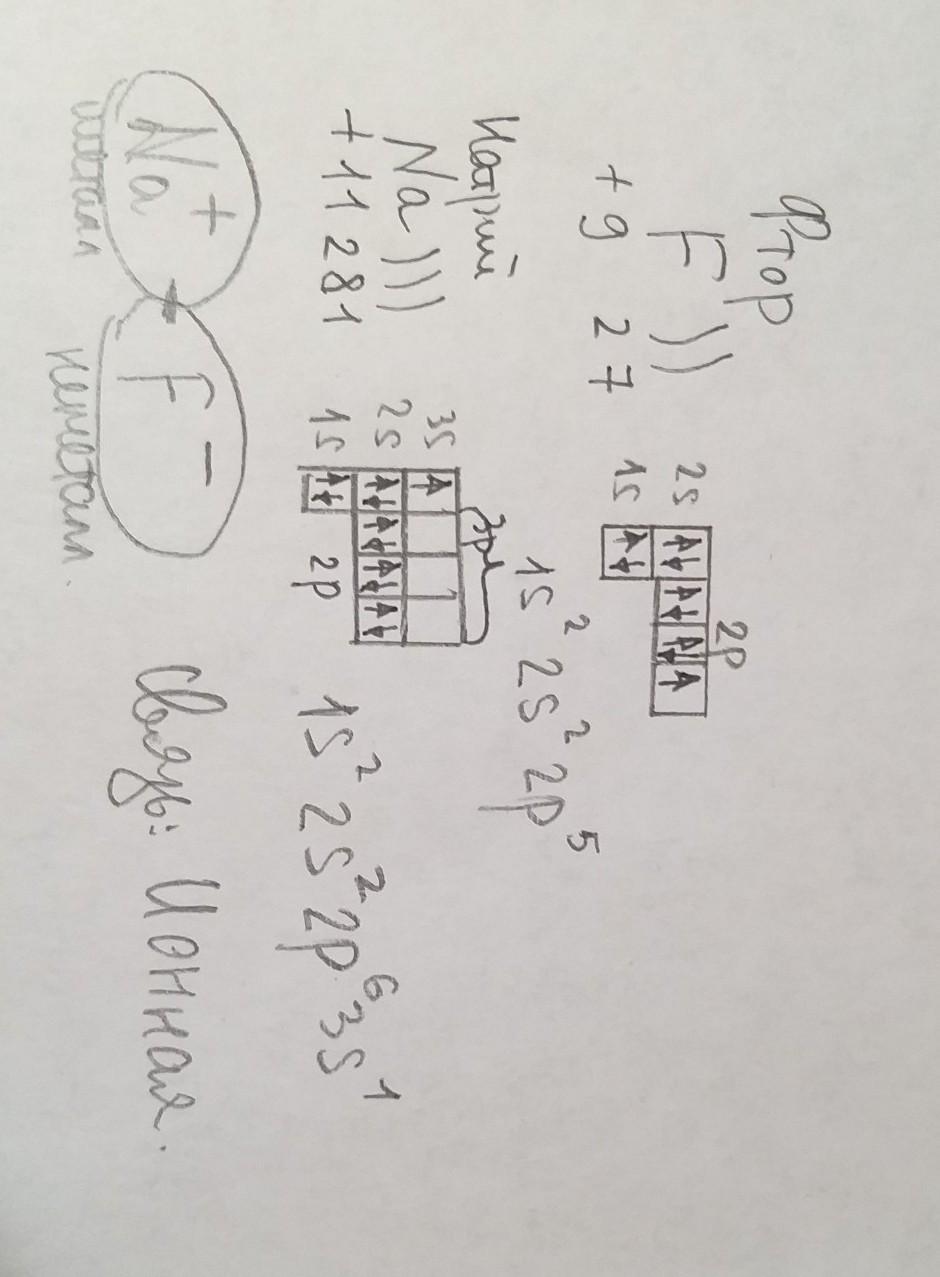 Фтор
F ))
+9 2 7
2s
1s
2p
1s² 2s² 2p⁵
Натрий
Na )))
+11 2 8 1
3s
2s
1s
3p
2p
1s² 2s² 2p⁶ 3s¹
Na⁺ F⁻
метал неметалл.
Связь: Ионная.